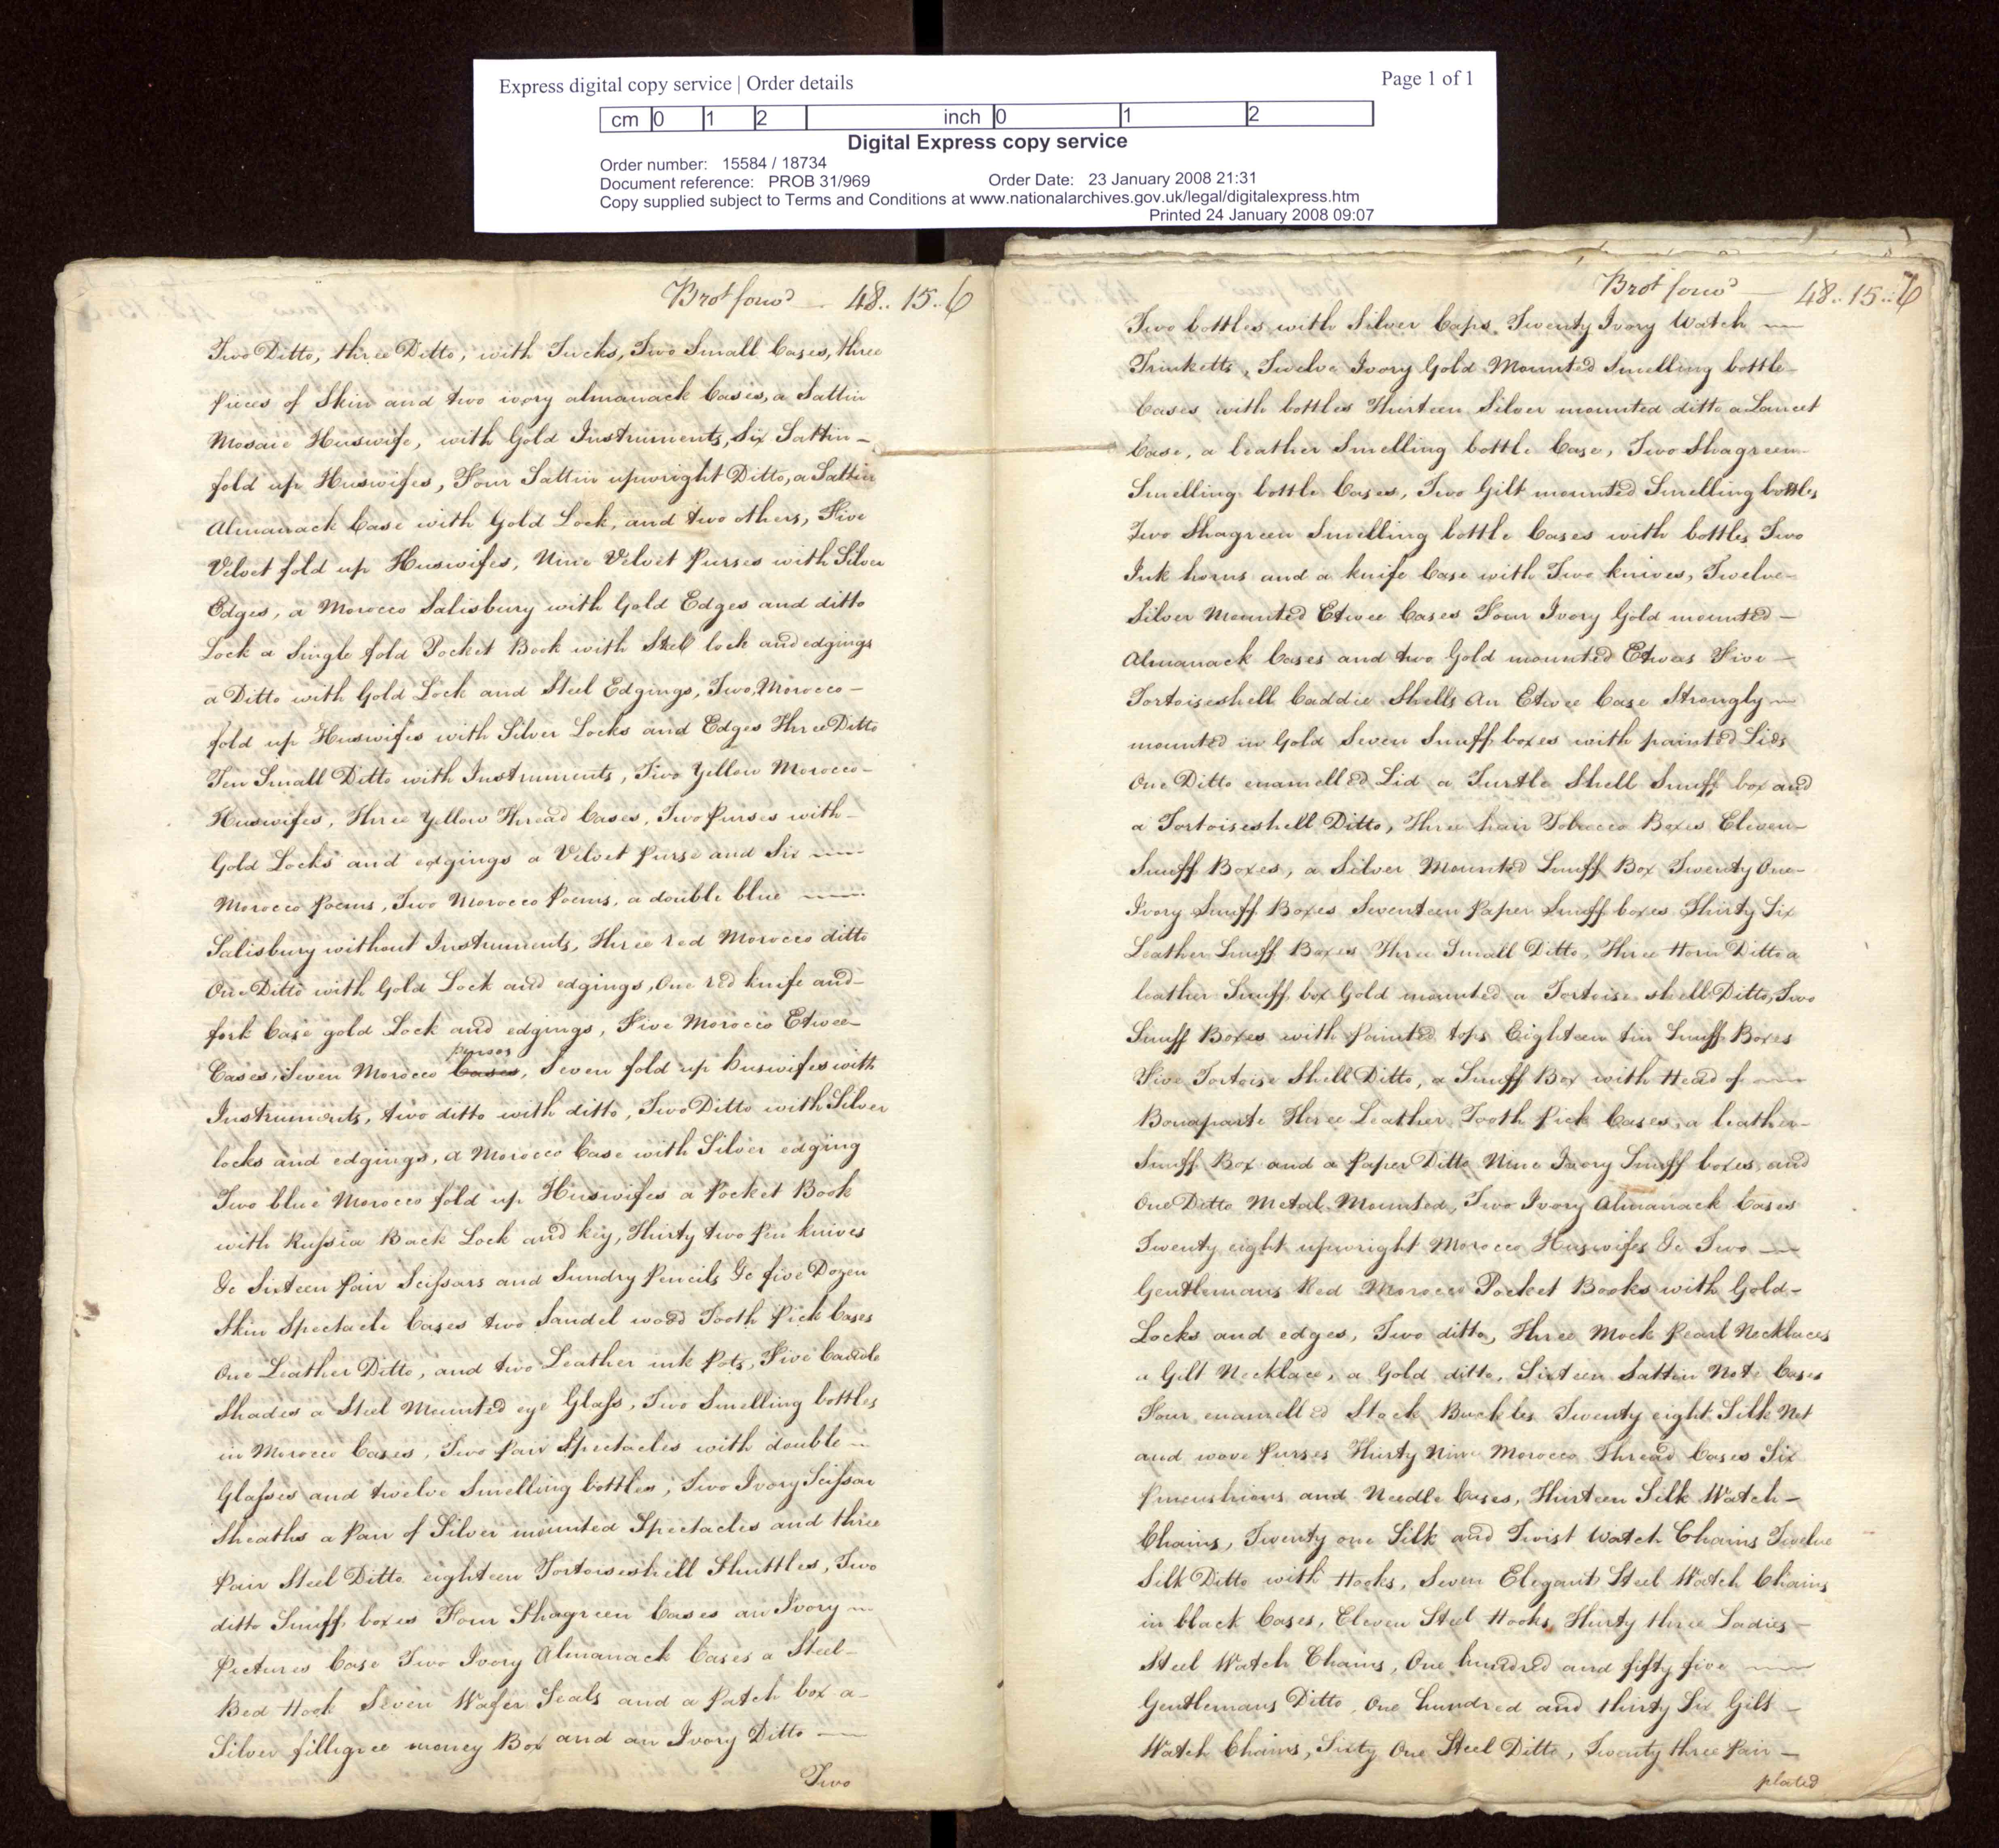 Express digital copy service | Order details
Page 1 of 1
cm 0 1 2 inch 0 1 2
Digital Express copy service
Order number: 15584 / 18734
Document reference: PROB 31/969 Order Date: 23 January 2008 21:31
Copy supplied subject to Terms and Conditions at www.nationalarchives.gov.uk/legal/digitalexpress.htm
Printed 24 January 2008 09:07
Brot forwd 48.. 15.. 6
Two Ditto, three Ditto, with Tucks, Two Small Cases, three
pieces of Skin and two ivory almanack Cases, a Sattin
Mosaic Huswife, with Gold Instruments, Six Sattin –
fold up Huswifes, Four Sattin upwright Ditto, a Sattin
Almanack Case with Gold Lock, and two others, Five
Velvet fold up Huswifes, Nine Velvet Purses with Silver
Edges, a Morocco Salisbury with Gold Edges and ditto
Lock a Single fold Pocket Book with Steel lock and edgings
a Ditto with Gold Lock and Steel Edgings, Two Morocco –
fold up Huswifes with Silver Locks and Edges Three Ditto
Ten Small Ditto with Instruments, Two Yellow Morocco –
Huswifes, Three Yellow Thread Cases, Two Purses with –
Gold Locks and edgings a Velvet Purse and Six
Morocco Poems, Two Morocco Poems, a double blue
Salisbury without Instruments, Three red Morocco ditto
One Ditto with Gold Lock and edgings, One red knife and –
fork Case gold Lock and edgings, Five Morocco Etwee –
purses
Cases, Seven Morocco Cases, Seven fold up huswifes with
Instruments, two ditto with ditto, Two Ditto with Silver
locks and edgings, a Morocco Case with Silver edging
Two blue Morocco fold up Huswifes a Pocket Book
with Russia Back Lock and key, Thirty two Pen knives
&c Sixteen Pair Scissars and Sundry Pencils &c five Dozen
Skin Spectacle Cases two Sandel wood Tooth Pick Cases
One Leather Ditto, and two Leather ink Pots, Five Candle
Shades a Steel Mounted eye Glass, Two Smelling bottles
in Morocco Cases, Two Pair Spectacles with double –
Glasses and twelve Smelling bottles, Two Ivory Scissar
Sheaths a Pair of Silver mounted Spectacles and three
Pair Steel Ditto eighteen Tortoiseshell Shuttles, Two
ditto Snuff boxes Four Shagreen Cases an Ivory
Pictures Case Two Ivory Almanack Cases a Steel –
Bed Hook Seven Wafer Seals and a Patch box a –
Silver filligree money Box and an Ivory Ditto –
Two
Brot forwd 48.. 15.. 6
Two bottles with Silver Caps Twenty Ivory Watch
Trinketts, Twelve Ivory Gold Mounted Smelling bottle –
Cases with bottles Thirteen Silver mounted ditto a Lancet
Case, a leather Smelling bottle Case, Two Shagreen –
Smelling bottle Cases, Two Gilt mounted Smelling bottles
Two Shagreen Smelling bottle Cases with bottles Two
Ink horns and a knife Case with Two knives, Twelve –
Silver Mounted Etwee Cases Four Ivory Gold mounted –
Almanack Cases and two Gold mounted Etwees Five –
Tortoiseshell Caddie Shells An Etwee Case Strongly
mounted in Gold Seven Snuff boxes with painted Lids
One Ditto enamelled Lid a Turtle Shell Snuff box and
a Tortoiseshell Ditto, Three hair Tobacco Boxes Eleven –
Snuff Boxes, a Silver Mounted Snuff Box Twenty One –
Ivory Snuff Boxes Seventeen Paper Snuff boxes Thirty Six
Leather Snuff Boxes Three Small Ditto, Three Horn Ditto a
leather Snuff box Gold mounted a Tortoise shell Ditto, Two
Snuff Boxes with Painted tops Eighteen tin Snuff Boxes
Five Tortoise Shell Ditto, a Snuff Box with Head of
Bonaparte Three Leather Tooth Pick Cases a leather –
Snuff Box and a Paper Ditto Nine Ivory Snuff boxes and
One Ditto Metal Mounted, Two Ivory Almanack Cases
Twenty eight upwright Morocco Huswifes &c Two –
Gentlemans Red Morocco Pocket Books with Gold –
Locks and edges, Two ditto, Three Mock Pearl Necklaces
a Gilt Necklace, a Gold ditto, Sixteen Sattin Note Cases
Four enamelled Stock Buckles Twenty eight Silk Net
and wove Purses Thirty Nine Morocco Thread Cases Six
Pincushions and Needle Cases, Thirteen Silk Watch –
Chains, Twenty one Silk and Twist Watch Chains Twelve
Silk Ditto with Hooks, Seven Elegant Steel Watch Chains
in black Cases, Eleven Steel Hooks Thirty three Ladies –
Steel Watch Chains, One hundred and fifty five
Gentlemans Ditto, One hundred and thirty Six Gilt –
Watch Chains, Sixty One Steel Ditto, Twenty three Pair –
plated